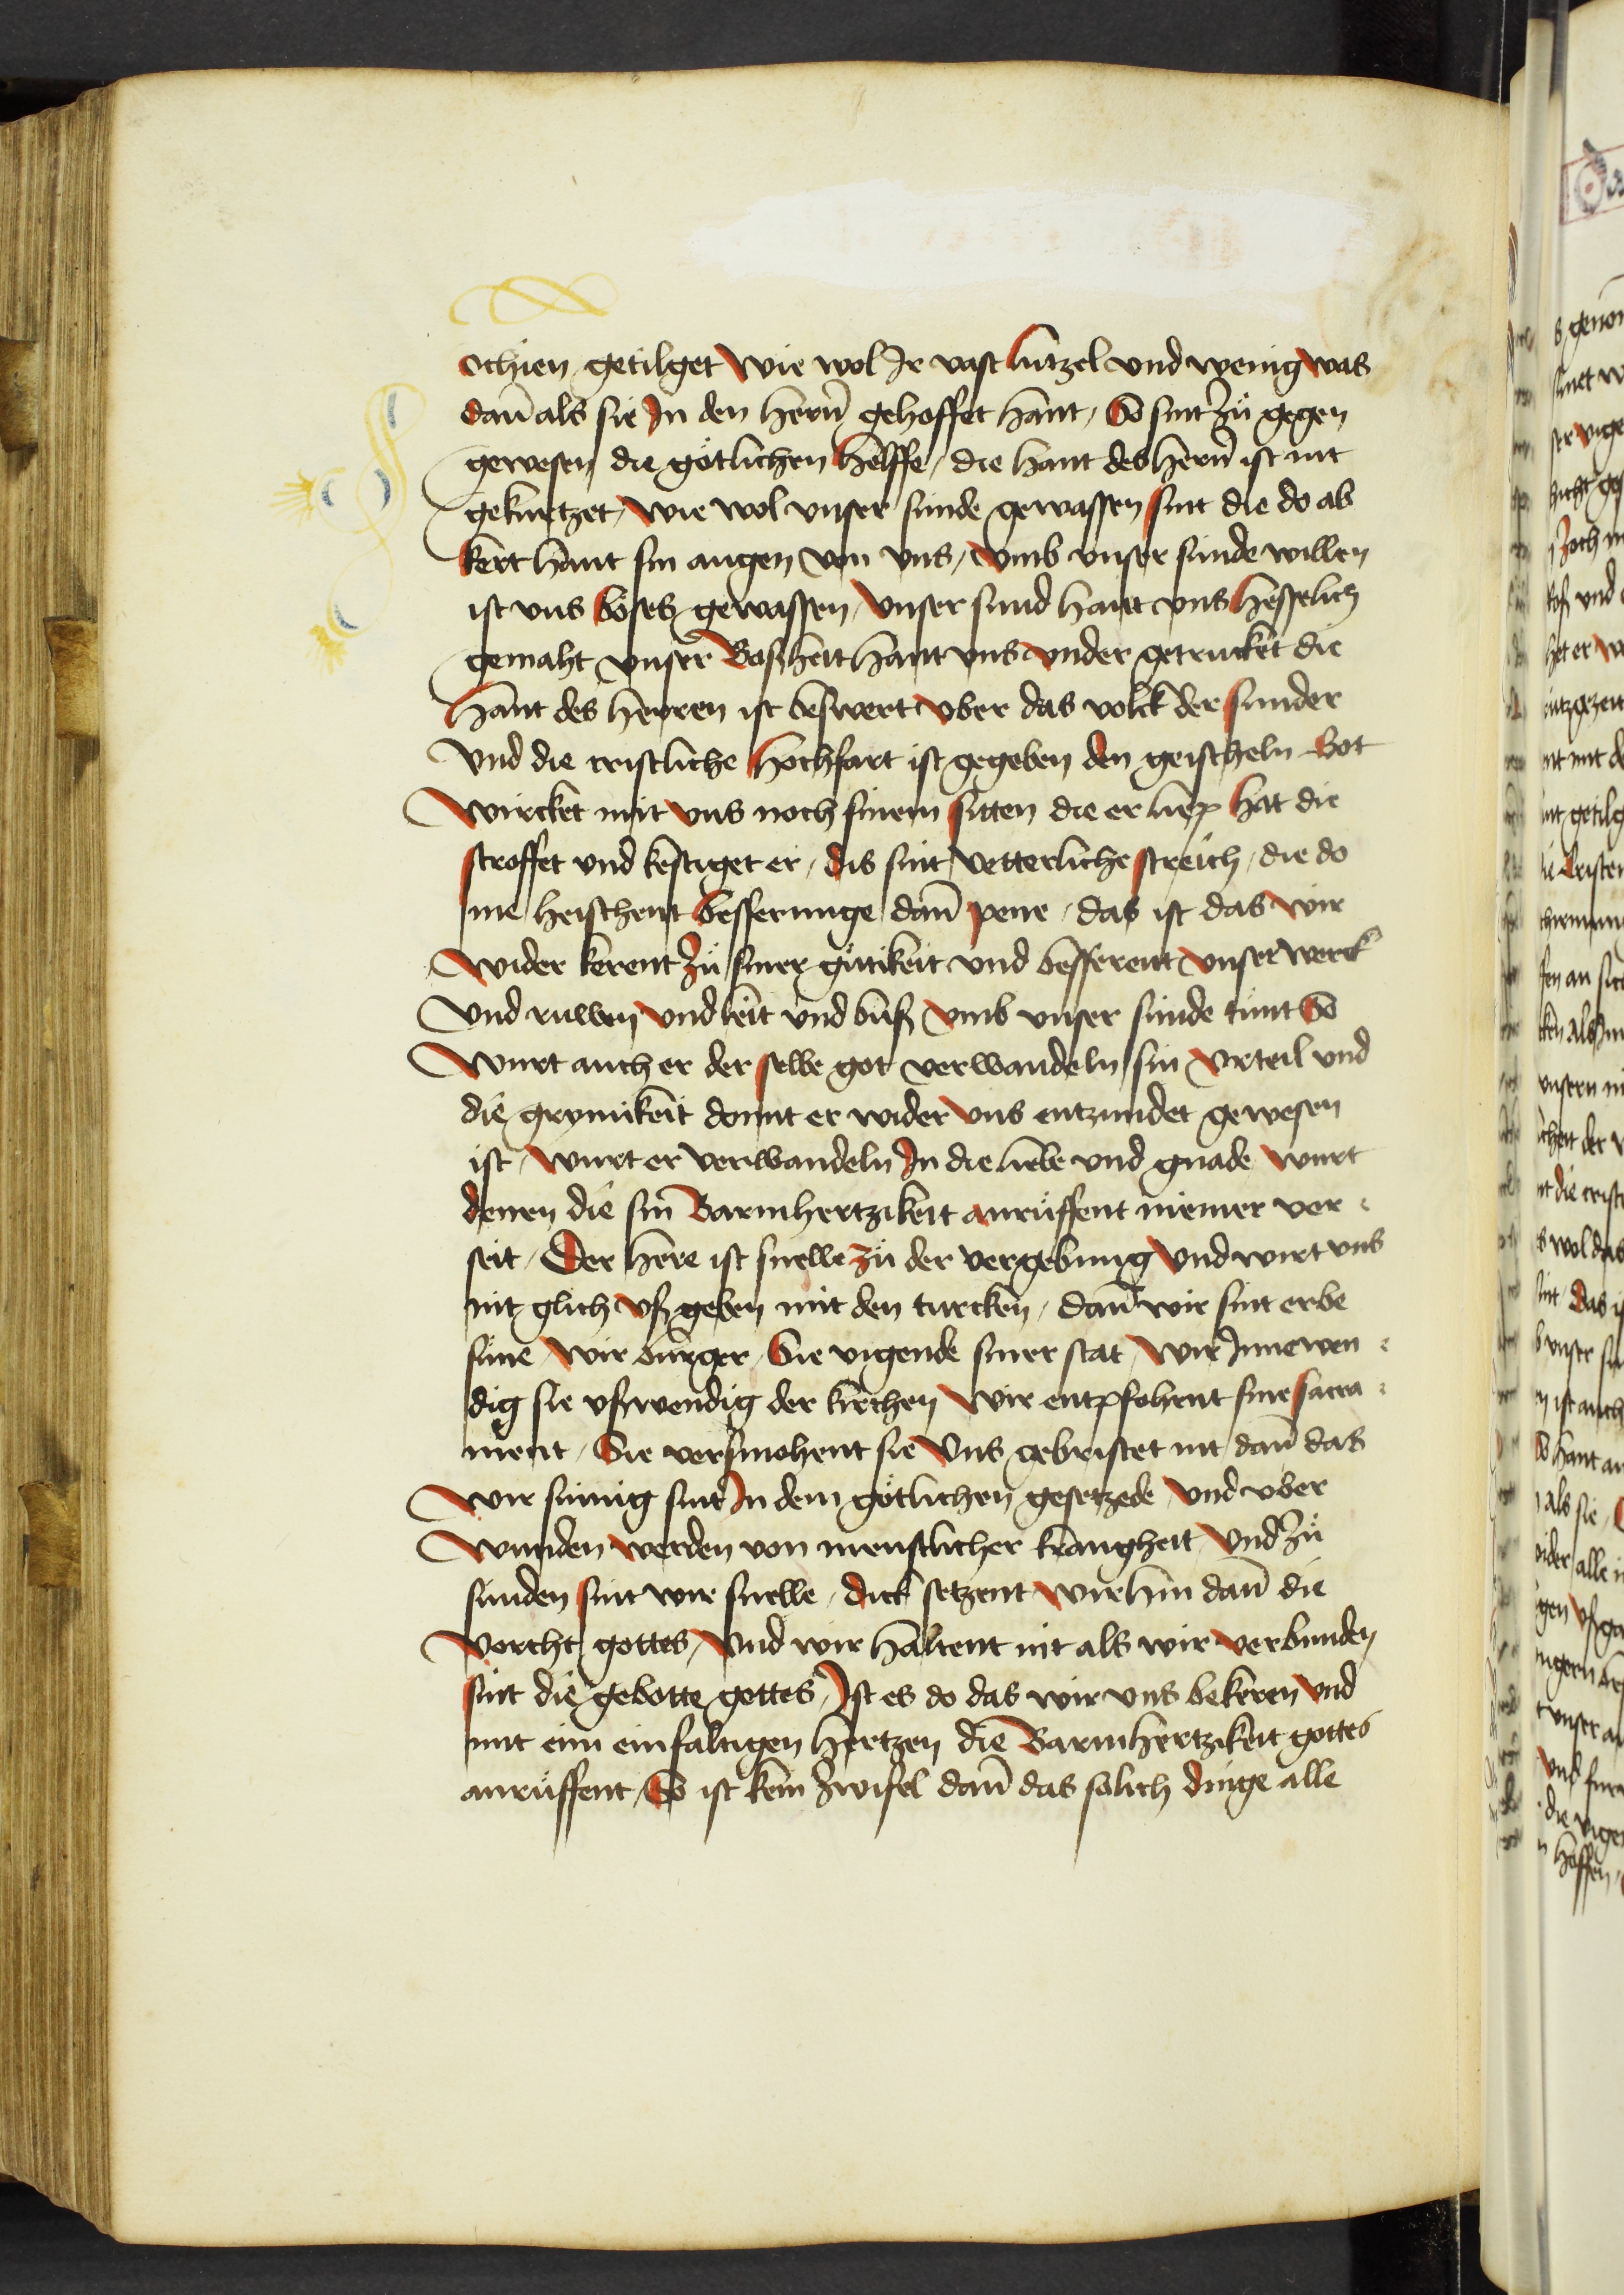 ochien getilget wie wol Ir vast lutzel vnd wenig was
dan̄ als sie In den hern̄ gehoffet hant / So sint zů gegen
gewesen die götlichen helffe / die hant des hern̄ ist nit
gekurtzet / wie wol vnser sunde gewassen sint die do ab
kert hant sin augen von vns / vmb vnser sunde willen
ist vns böses gewassen / vnser sund hant vns hesselich
gemaht vnser Bosheit hant vns vnder getrucket die
hant des herren ist beswert vber das volck der sunder
vnd die cristliche hochfart ist gegeben den geischeln Got
wircket mit vns noch sinem sitten die er liep hat die
stroffet vnd kestiget er / dis sint vetterliche streich / die do
me heischent besserunge dan̄ pene / das ist das wir
wider kerent zů siner gütikeit vnd besserent vnser werck
vnd ruwen vnd leit vnd bůß vmb vnser sunde tůnt So
wurt auch er der selbe got verwandeln sin vrteil vnd
die grymikeit domit er wider vns entzundet gewesen
ist / wurt er verwandeln In die liebe vnd gnade wurt
denen die sin Barmhertzikeit anrüffent niemer ver
seit / Der here ist snelle zů der vergebung vnd wirt vns
nit glich vß geben mit den turcken / dan̄ wir sint erbe
süne / wir burger / Sie vigende siner stat / wir Innewen
dig sie vßwendig der kirchen wir entpfohent sine sacra
ment / Sie versmohent sie Vns gebristet nit dan̄ das
wir sůmig sint In dem götlichen gesetzede / vnd vber
wunden werden von menschlicher krangheit vnd zů
sunden sint wir snelle / dick setzent wir hin dan̄ die
vorcht gottes / vnd wir haltent nit als wir verbunden
sint die gebotte gottes / Ist es do das wir vns bekeren vnd
mit eim einfaltigen hertzen die Barmhertzikeit gottes
anrüffent / So ist kein zwifel dan̄ das solich dinge alle